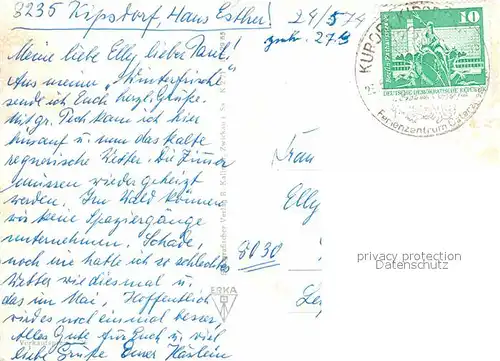 8235 Kipsdorf, Haus Esther
24/5 74
Meine liebe Elly, lieber Paul!
Aus meiner "Winterfrische"
sende ich Euch herzl. Grüße.
Mit gr. Pech kam ich hier
hinauf u. nun das kalte
regnerische Wetter. Die Zimmer
müssen wieder geheizt
werden. Im Wald können
wir keine Spaziergänge
unternehmen. Schade,
noch nie hatte ich so schlechtes
Wetter wie diesmal u.
das im Mai. Hoffentlich
wird es noch einmal besser.
Alles Gute für Euch u. viel
liebe Grüße Eurer
Frau
Elly
8030
ERKA
KURORT
10
DEUTSCHE DEMOKRATISCHE REPUBLIK
Ferienzentrum Osterzgeb
privacy protection
Datenschutz